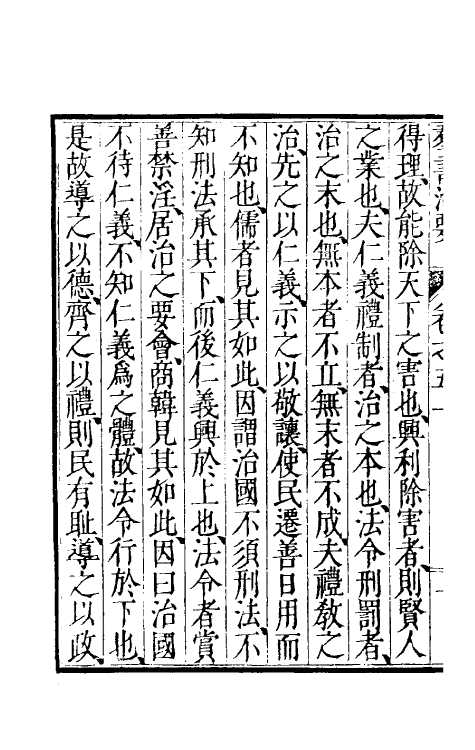 羣書治要 卷之五十
得理、故能除天下之害也、興利除害者、則賢人
之業也、夫仁義禮制者、治之本也、法令刑罰者、
治之末也、無本者不立、無末者不成、夫禮敎之
治、先之以仁義、示之以敬讓、使民遷善日用而
不知也、儒者見其如此、因謂治國不須刑法、不
知刑法承其下、而後仁義興於上也、法令者賞
善禁淫、居治之要會、商韓見其如此、因曰治國
不待仁義、不知仁義爲之體、故法令行於下也、
是故導之以德、齊之以禮、則民有耻、導之以政、